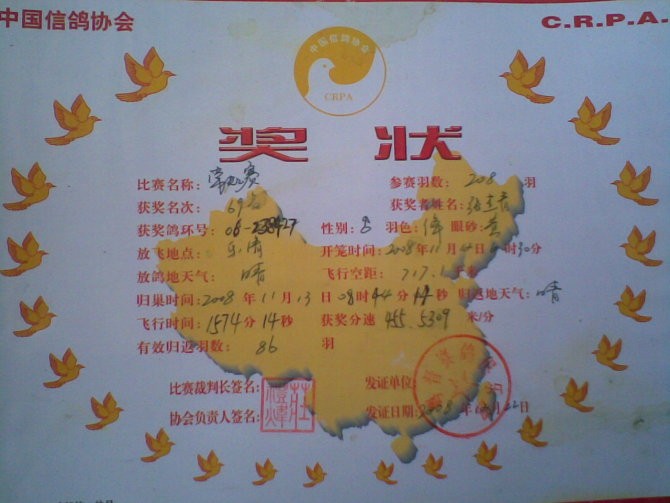 中国信鸽协会 C.R.P.A.
中国信鸽协会
CRPA
奖 状
比赛名称: 参赛羽数: 208 羽
获奖名次: 69名 获奖者姓名:
获奖鸽环号: 06- 性别: 羽色: 眼砂: 黄
放飞地点: 乐清 开笼时间: 2008年11月 日 时30分
放鸽地天气: 晴 飞行空距: 717. 千米
归巢时间: 2008年11月13日08时44分14秒 归返地天气: 晴
飞行时间: 1574分14秒 获奖分速 455.5309 米/分
有效归返羽数: 86 羽
比赛裁判长签名: 发证单位:
协会负责人签名: 发证日期: 2008年 月22日